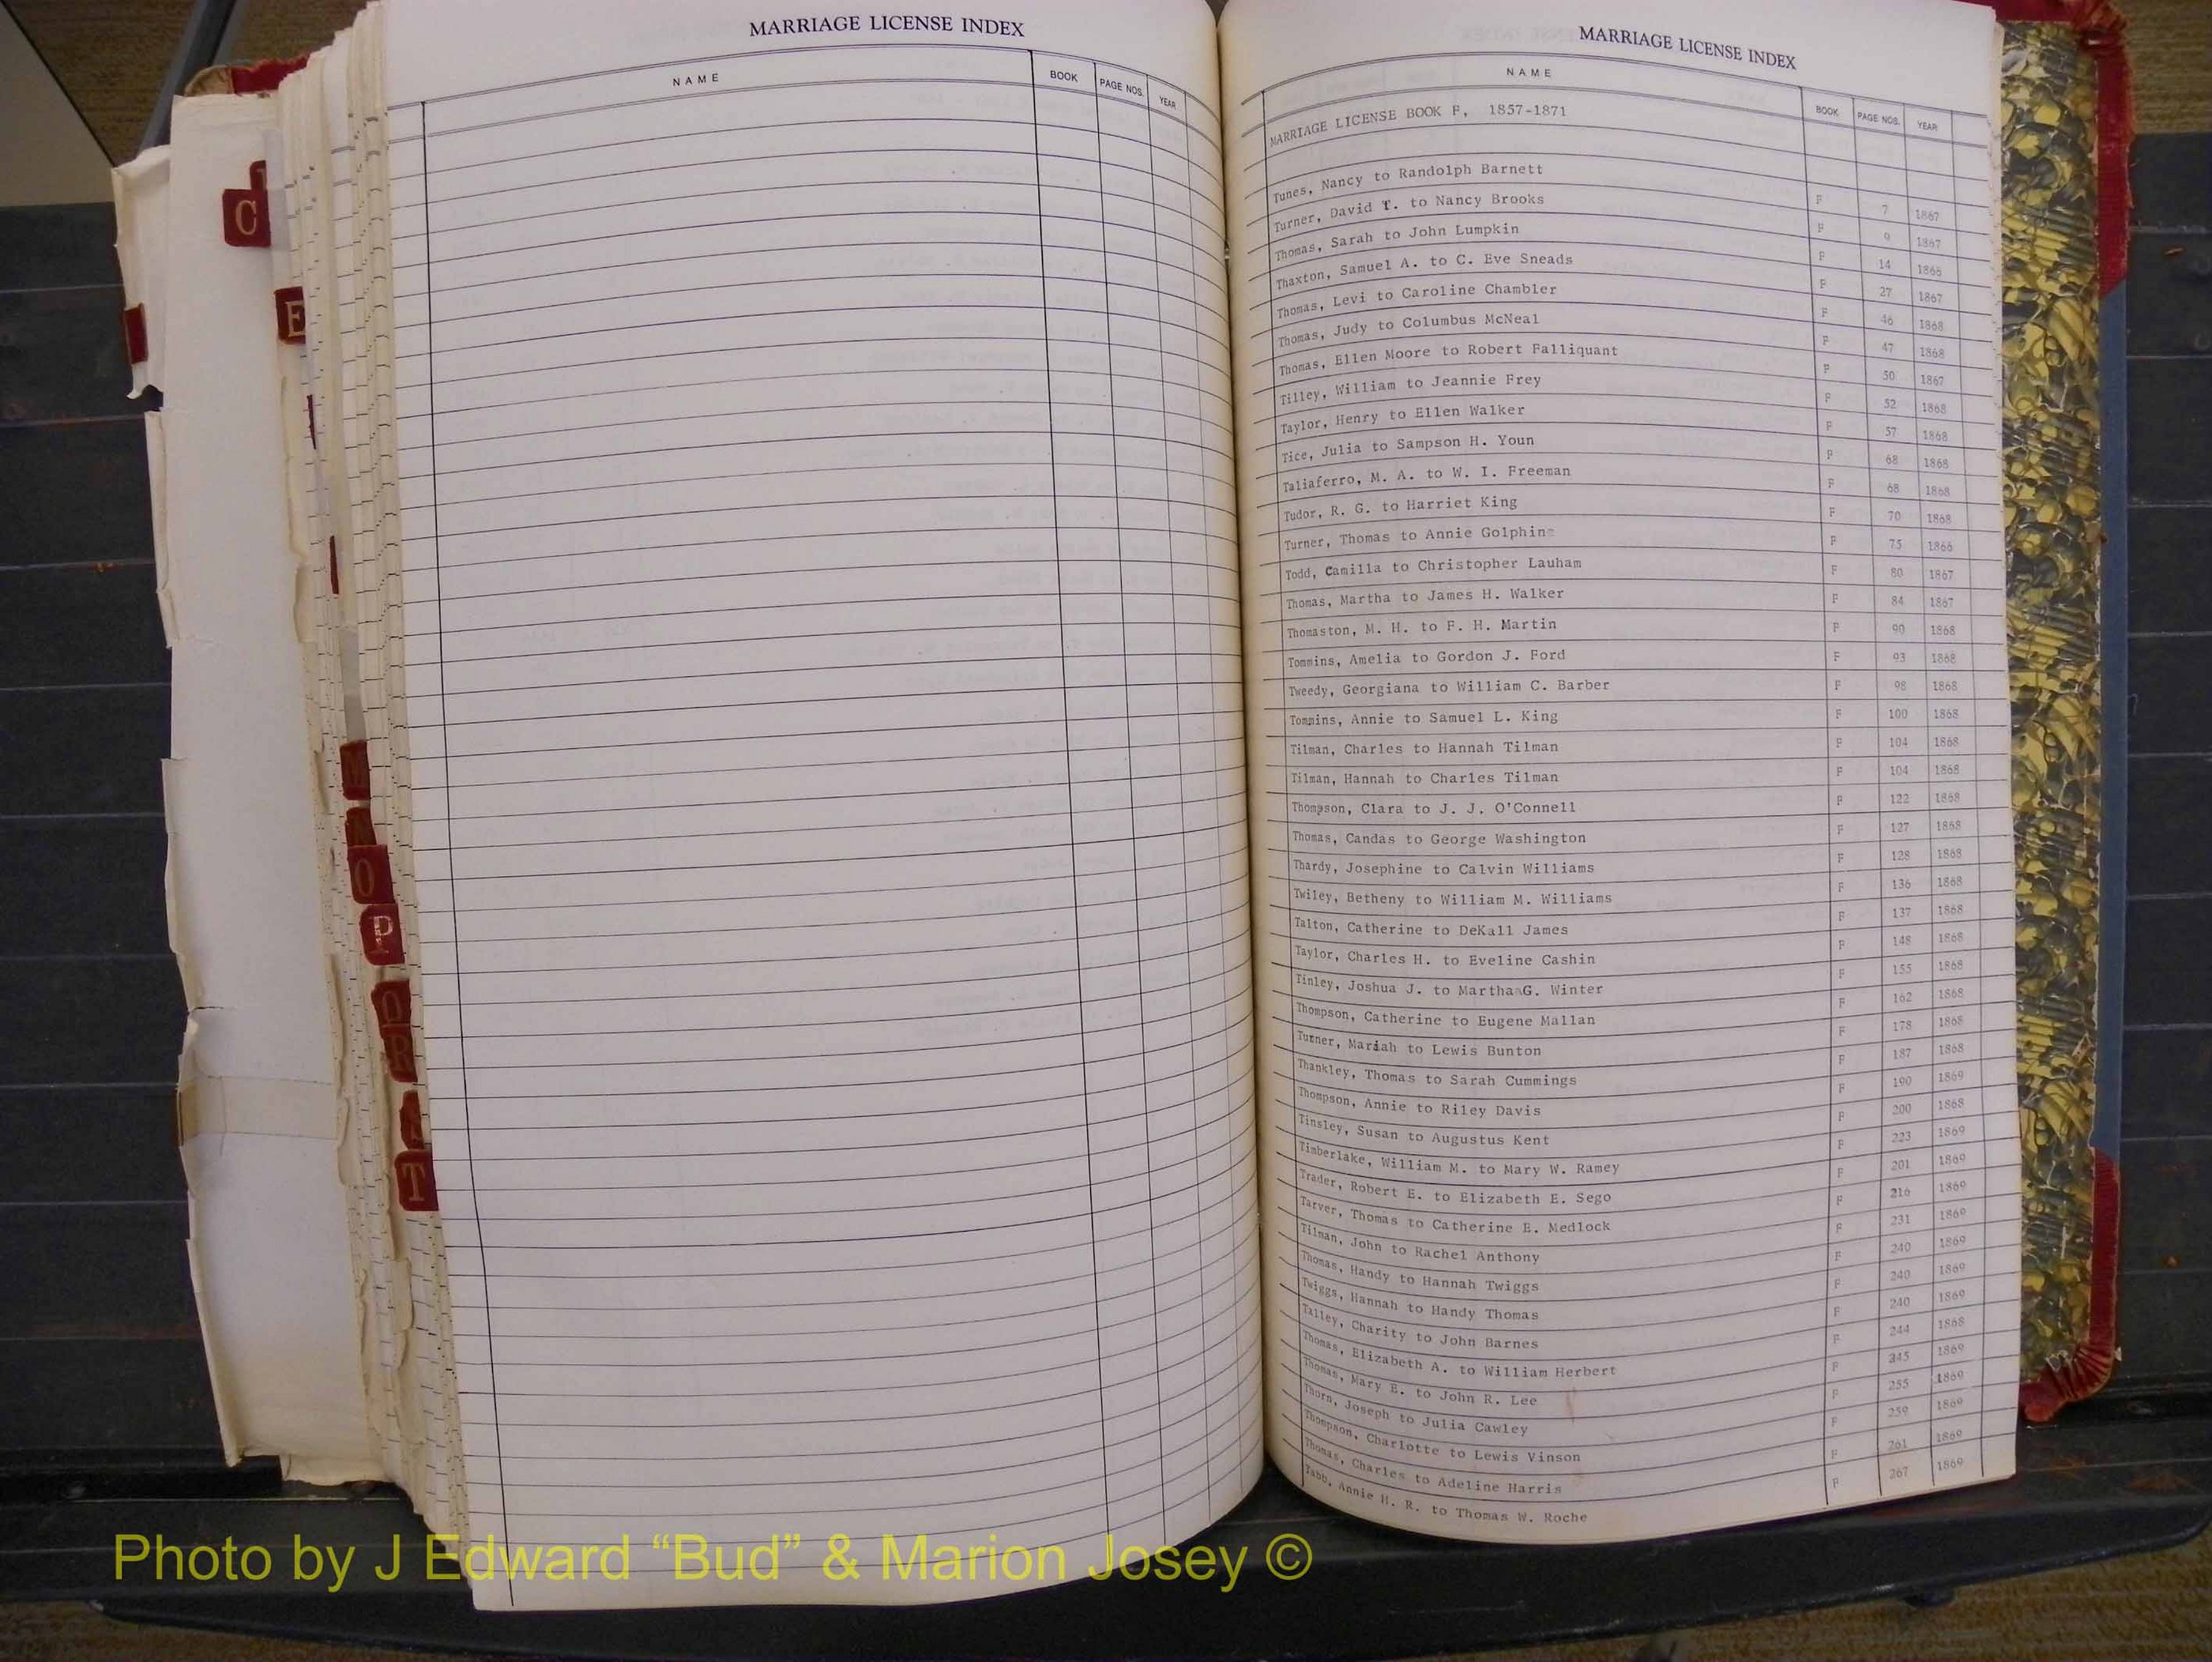 MARRIAGE LICENSE INDEX
NAME BOOK PAGE NOS. YEAR
MARRIAGE LICENSE INDEX
NAME BOOK PAGE NOS. YEAR
MARRIAGE LICENSE BOOK F, 1857-1871
Tunes, Nancy to Randolph Barnett F 7 1867
Turner, David T. to Nancy Brooks F 9 1867
Thomas, Sarah to John Lumpkin F 14 1866
Thaxton, Samuel A. to C. Eve Sneads F 27 1867
Thomas, Levi to Caroline Chambler F 46 1868
Thomas, Judy to Columbus McNeal F 47 1868
Thomas, Ellen Moore to Robert Falliquant F 50 1867
Tilley, William to Jeannie Frey F 52 1868
Taylor, Henry to Ellen Walker F 57 1868
Tice, Julia to Sampson H. Youn F 68 1868
Taliaferro, M. A. to W. I. Freeman F 68 1868
Tudor, R. G. to Harriet King F 70 1868
Turner, Thomas to Annie Golphine F 75 1866
Todd, Camilla to Christopher Lauham F 80 1867
Thomas, Martha to James H. Walker F 84 1867
Thomaston, M. H. to F. H. Martin F 90 1868
Tommins, Amelia to Gordon J. Ford F 93 1868
Tweedy, Georgiana to William C. Barber F 98 1868
Tommins, Annie to Samuel L. King F 100 1868
Tilman, Charles to Hannah Tilman F 104 1868
Tilman, Hannah to Charles Tilman F 104 1868
Thompson, Clara to J. J. O'Connell F 122 1868
Thomas, Candas to George Washington F 127 1868
Thardy, Josephine to Calvin Williams F 128 1868
Twiley, Betheny to William M. Williams F 136 1868
Talton, Catherine to DeKall James F 137 1868
Taylor, Charles H. to Eveline Cashin F 148 1868
Tinley, Joshua J. to MarthaaG. Winter F 155 1868
Thompson, Catherine to Eugene Mallan F 162 1868
Turner, Mariah to Lewis Bunton F 178 1868
Thankley, Thomas to Sarah Cummings F 187 1868
Thompson, Annie to Riley Davis F 190 1869
Tinsley, Susan to Augustus Kent F 200 1868
Timberlake, William M. to Mary W. Ramey F 223 1869
Trader, Robert E. to Elizabeth E. Sego F 201 1869
Tarver, Thomas to Catherine E. Medlock F 216 1869
Tilman, John to Rachel Anthony F 231 1869
Thomas, Handy to Hannah Twiggs F 240 1869
Twiggs, Hannah to Handy Thomas F 240 1869
Talley, Charity to John Barnes F 240 1869
Thomas, Elizabeth A. to William Herbert F 244 1868
Thomas, Mary E. to John R. Lee F 245 1869
Thorn, Joseph to Julia Cawley F 255 1869
Thompson, Charlotte to Lewis Vinson F 259 1869
Thomas, Charles to Adeline Harris F 261 1869
Tabb, Annie H. R. to Thomas W. Roche F 267 1869
C
E
M
N
O
P
Q
R
T
Photo by J Edward “Bud” & Marion Josey ©